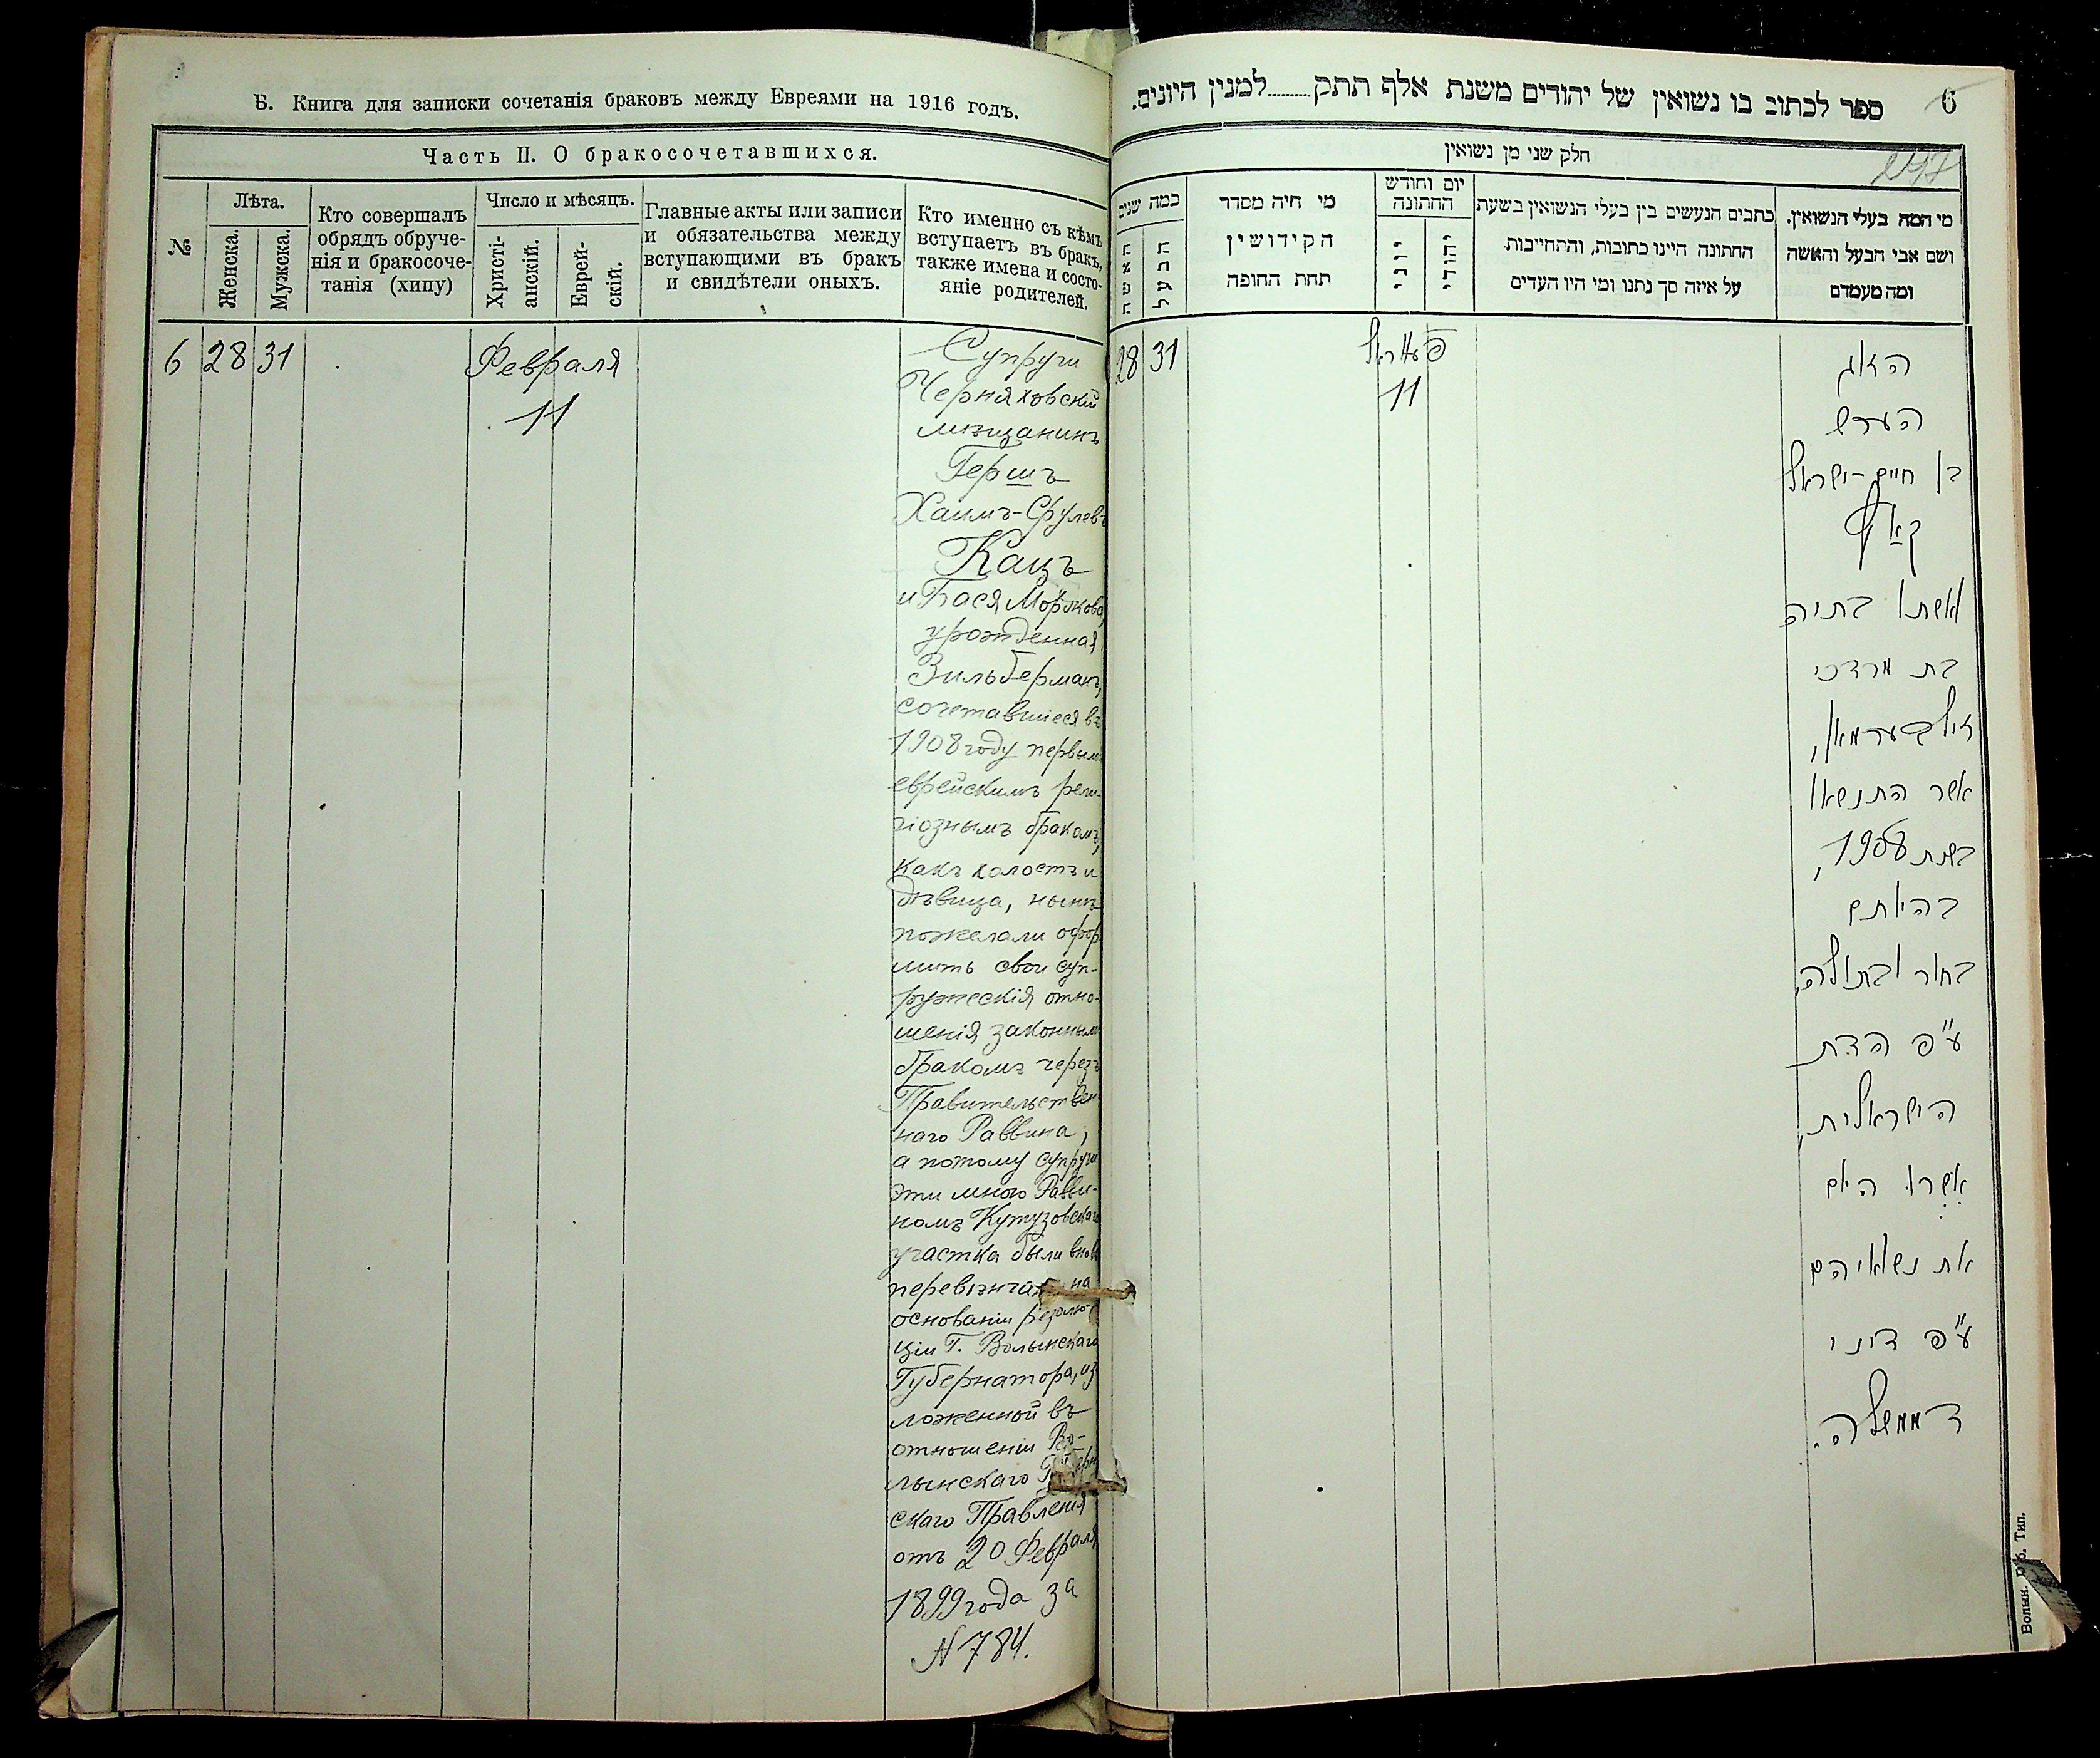 Б. Книга для записки сочетанія браковъ между Евреями на 1916 годъ.
Часть II. О бракосочетавшихся.
№
Лѣта.
Женска.
Мужска.
Кто совершалъ
обрядъ обруче-
нія и бракосоче-
танія (хипу)
Число и мѣсяцъ.
Христі-
анскій.
Еврей-
скій.
Главные акты или записи
и обязательства между
вступающими въ бракъ
и свидѣтели оныхъ.
Кто именно съ кѣмъ
вступаетъ въ бракъ,
также имена и состо-
яніе родителей.
6 28 31
Февраля
11
Супруги
Черняховскій
мѣщанинъ
Гершъ
Хаимъ-Срулевъ
Кацъ
и Бася Моркова
урожденная
Зильберманъ,
сочетавшіеся въ
1908 году первымъ
еврейскимъ рели-
гіознымъ бракомъ,
какъ холостъ и
дѣвица, нынѣ
пожелали офор
мить свои суп-
ружескія отно-
шенія законнымъ
бракомъ черезъ
Правительствен
наго Раввина,
а потому супруги
эти мною Равви-
номъ Кутузовскаго
участка были вновь
перевѣнча на
основаніи резолю-
ціи Г. Волынскаго
Губернатора, из
ложенной въ
отношеніи Во-
лынскаго
скаго Правленія
отъ 20 Февраля
1899 года за
N 784.
6
ספר לכתוב בו נשואין של יהודים משנת אלף תתק........למנין היונים.
297
חלק שני מן נשואין
כמה שנים
האשה
הבעל
מי היה מסדר
הקידושין
תחת החופה
יום וחודש
החתונה
יוני
יהודי
כתבים הנעשים בין בעלי הנשואין בשעת
החתונה היינו כתובות, והתחייבות
על איזה סך נתנו ומי היו העדים
מי המה בעלי הנשואין.
ושם אבי הבעל והאשה
ומה מעמדם
28 31
פעוראל
11
הזוג
הערש
בן חיים-ישראל
קאץ
ואשתו בתיה
בת מרדכי
זילבערמאן,
אשר התנשאו
בשנת 1908,
בהיותם
בחור ובתולה,
ע"פ הדת
הישראלית,
אשרו היום
את נשואיהם
ע"פ דיני
הממשלה.
Волын. Губ. Тип.